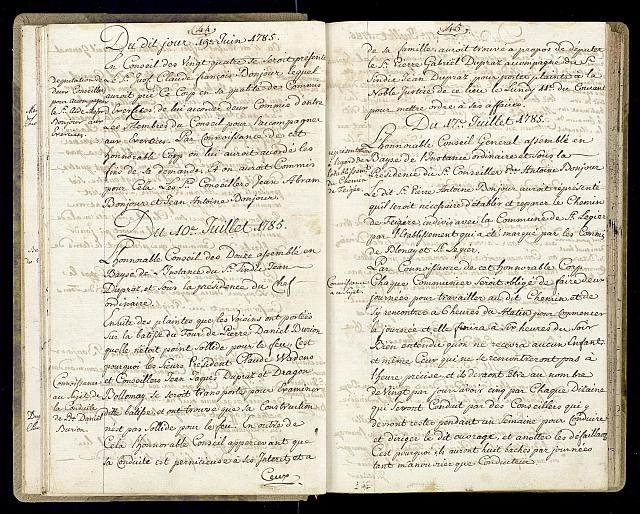 44
Du dit jour 19e. Juin 1785.
En Conseil des Vingt quatre se seroit présenté
le Sr. Just. Claude François Bonjour, lequel
auroit prié ce Corp en sa qualité des Commis
de lui acorder deux Commis d'entre
Les Membres du Conseil pour l'accompagner
aux Par Connoissance de cet
honnorable Corp on lui auroit accordé les
fins de sa demande. & on auroit Commis
pour Cela Les Srs. Conseillers Jean Abram
Bonjour et Jean Antoine Bonjour.
deputation de
deux Conseillers
pour accompagner
Bonjour aux
Du 10e. Juillet 1785.
L'honnorable Conseil des Douze assemblé en
Bayse de L'Instance du Sr. Sindic Jean
Dupraz et sous la présidence du Chef
ordinaire.
Ensuite des plaintes que les voisins ont portées
Sur la batise du Four de Pierre Daniel Burion
quelle n'etoit point Sollide pour le feu, C'est
pourquoi les Sieurs Président Claude Wadens
et Conseillers Jean Jaques Dupraz et Dragon
Dollonay se seroit transportés pour Examiner
dite batise, et ont trouvé que sa Construction
n'est pas Sollide pour le feu. En outre de
Cela l'honnorable Conseil appercevant que
sa Conduite est pernicieuse à ses Interets, et a
Ceux
Connoissance
au Sujet de
la Conduite
de Pre. Daniel
Burion
45
de sa famille, auroit trouvé a propos de députer
le Sr. Pierre Gabriel Dupraz accompagné du Sr.
Sindic Jean Dupraz pour porter plainte à la
Noble Justice de ce lieu le Lundy 11e. du Courant
pour mettre ordre à ses affaires.
Du 17e. Juillet 1785.
L'honnorable Conseil General assemblé en
Bayse de L'Instance ordinaire et sous la
Présidence du Sr. Conseiller Pre. Antoine Bonjour
Le dit Sr. Pierre Antoine Bonjour auroit réprésenté
qu'il seroit nécessaire d'établir et réparer le Chemin
de Feigire indivis avec la Commune de St. Légier
par l'Etablissement qui a été marqué par les Commis
de Blonay et St. Légier.
du Chemin
de Feigire
Par Connoissance de cet honnorable Corp
Chaque Communier Seront obligé de faire deux
journées pour travailler au dit Chemin, et de
S'y rencontrer a 6 heures du Matin pour commencer
la journée et elle finira à Six heures du Soir
Bien entendu qu'on ne recevra aucun Enfant
et même Ceux qui ne se rencontreront pas à
l'heure précise, et ils devront Etre au nombre
de Vingt par jour Savoir cinq par Chaque Dizaine
qui Seront Conduit par des Conseillers qui y
devront rester pendant une Semaine pour Conduire
et diriger le dit ouvrage, et anotter les défaillans
C'est pourquoi ils auront huit baches par journées
tant manouvrier que Conducteur.
Connoissance